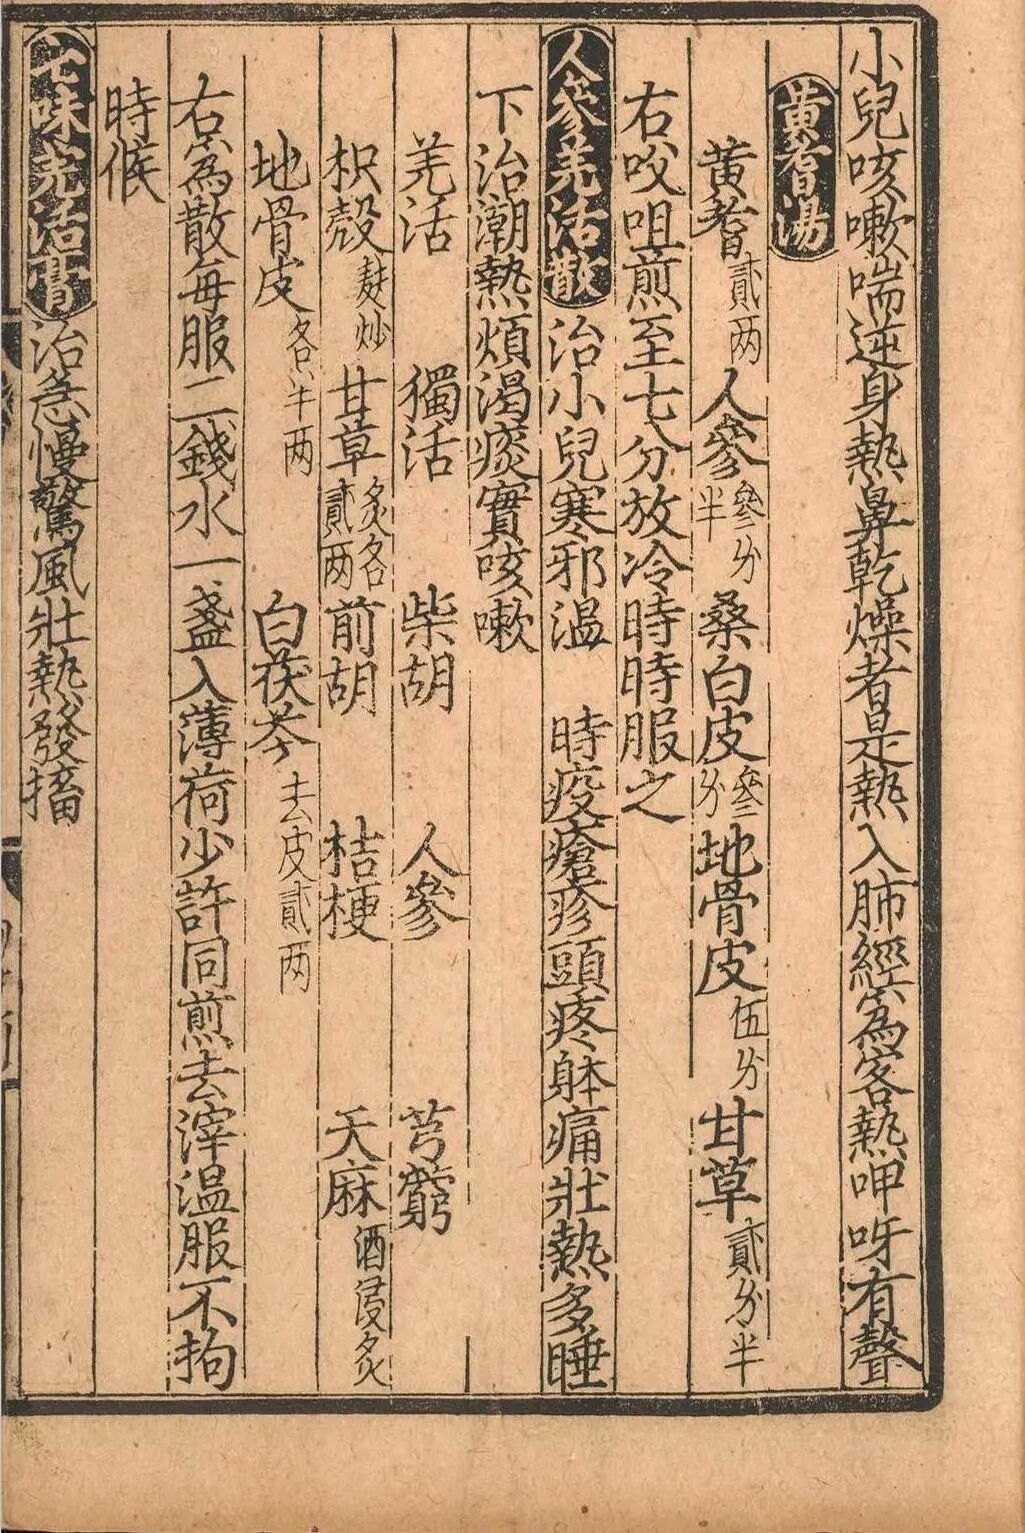 小兒咳嗽喘逆身熱鼻乾燥者是熱入肺經爲客熱呷呀有聲
黃耆湯
黃耆貳两 人參參分半 桑白皮參分 地骨皮伍分 甘草貳分半
右㕮咀煎至七分放冷時時服之
人參羌活散 治小兒寒邪温 時疫瘡疹頭疼躰痛壯熱多睡
下治潮熱煩渴痰實咳嗽
羌活 獨活 柴胡 人參 芎藭
枳殼麸炒 甘草炙各貳两 前胡 桔梗 天麻酒浸炙
地骨皮各半两 白茯苓去皮貳两
右爲散每服二錢水一盞入薄荷少許同煎去滓温服不拘
時候
七味羌活膏 治急慢驚風壯熱發搐